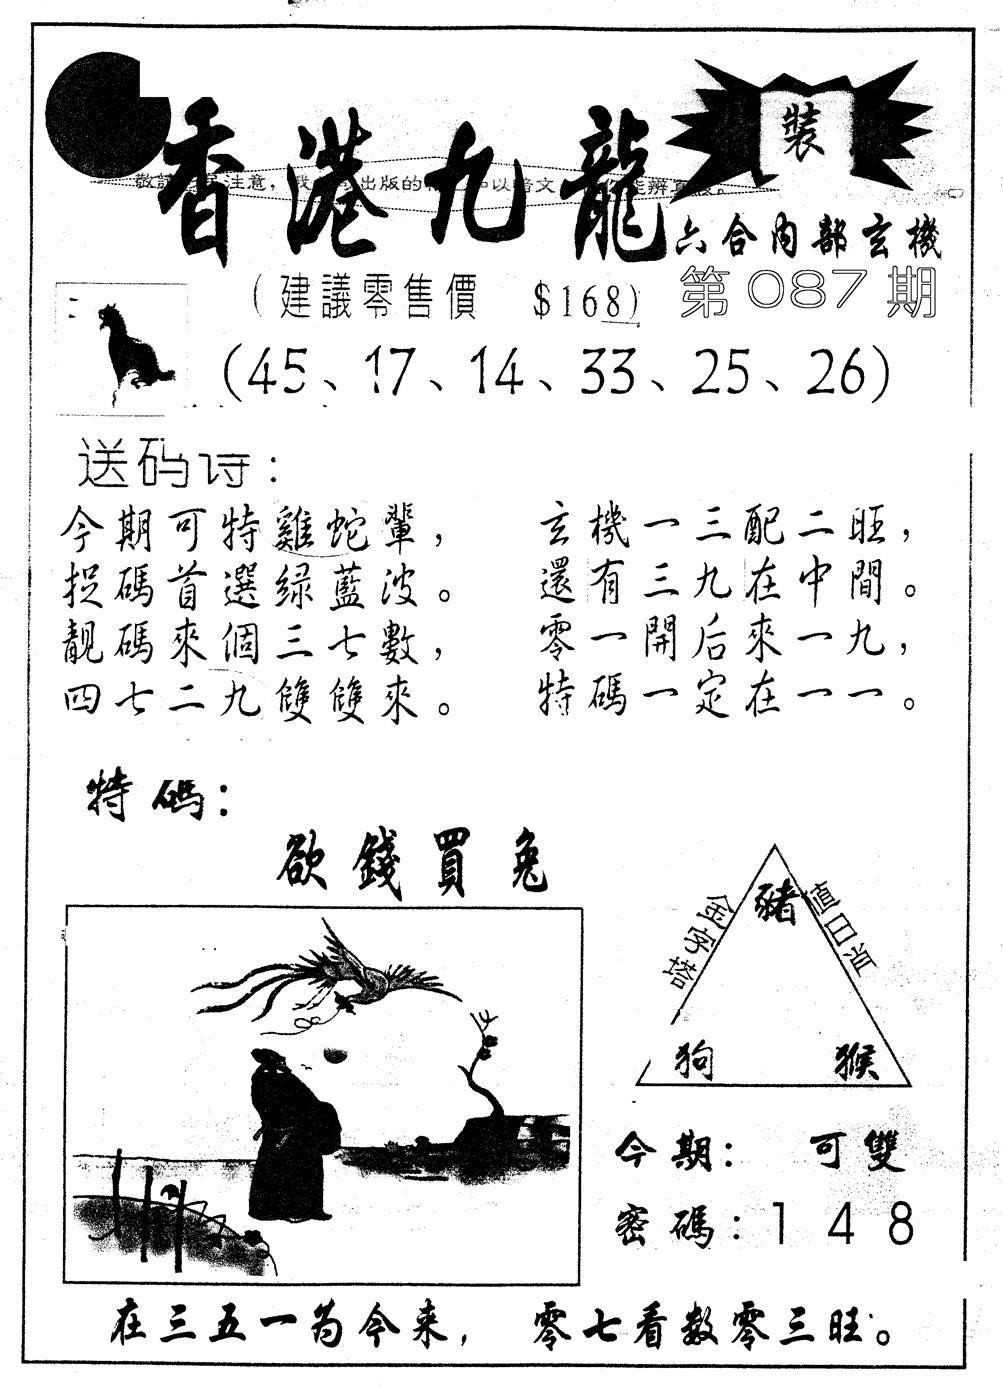 香港九龍
裝
敬 注意， 出版的 以暗文
六合內部玄機
第087期
（建議零售價 $168）
（45、17、14、33、25、26）
送码诗：
今期可特雞蛇輩，
捉碼首選绿藍波。
靚碼來個三七數，
四七二九雙雙來。
玄機一三配二旺，
還有三九在中間。
零一開后來一九，
特碼一定在一一。
特碼：
欲錢買兔
金字塔
值日肖
豬
狗 猴
今期： 可雙
密碼：1 4 8
在三五一为今来， 零七看数零三旺。